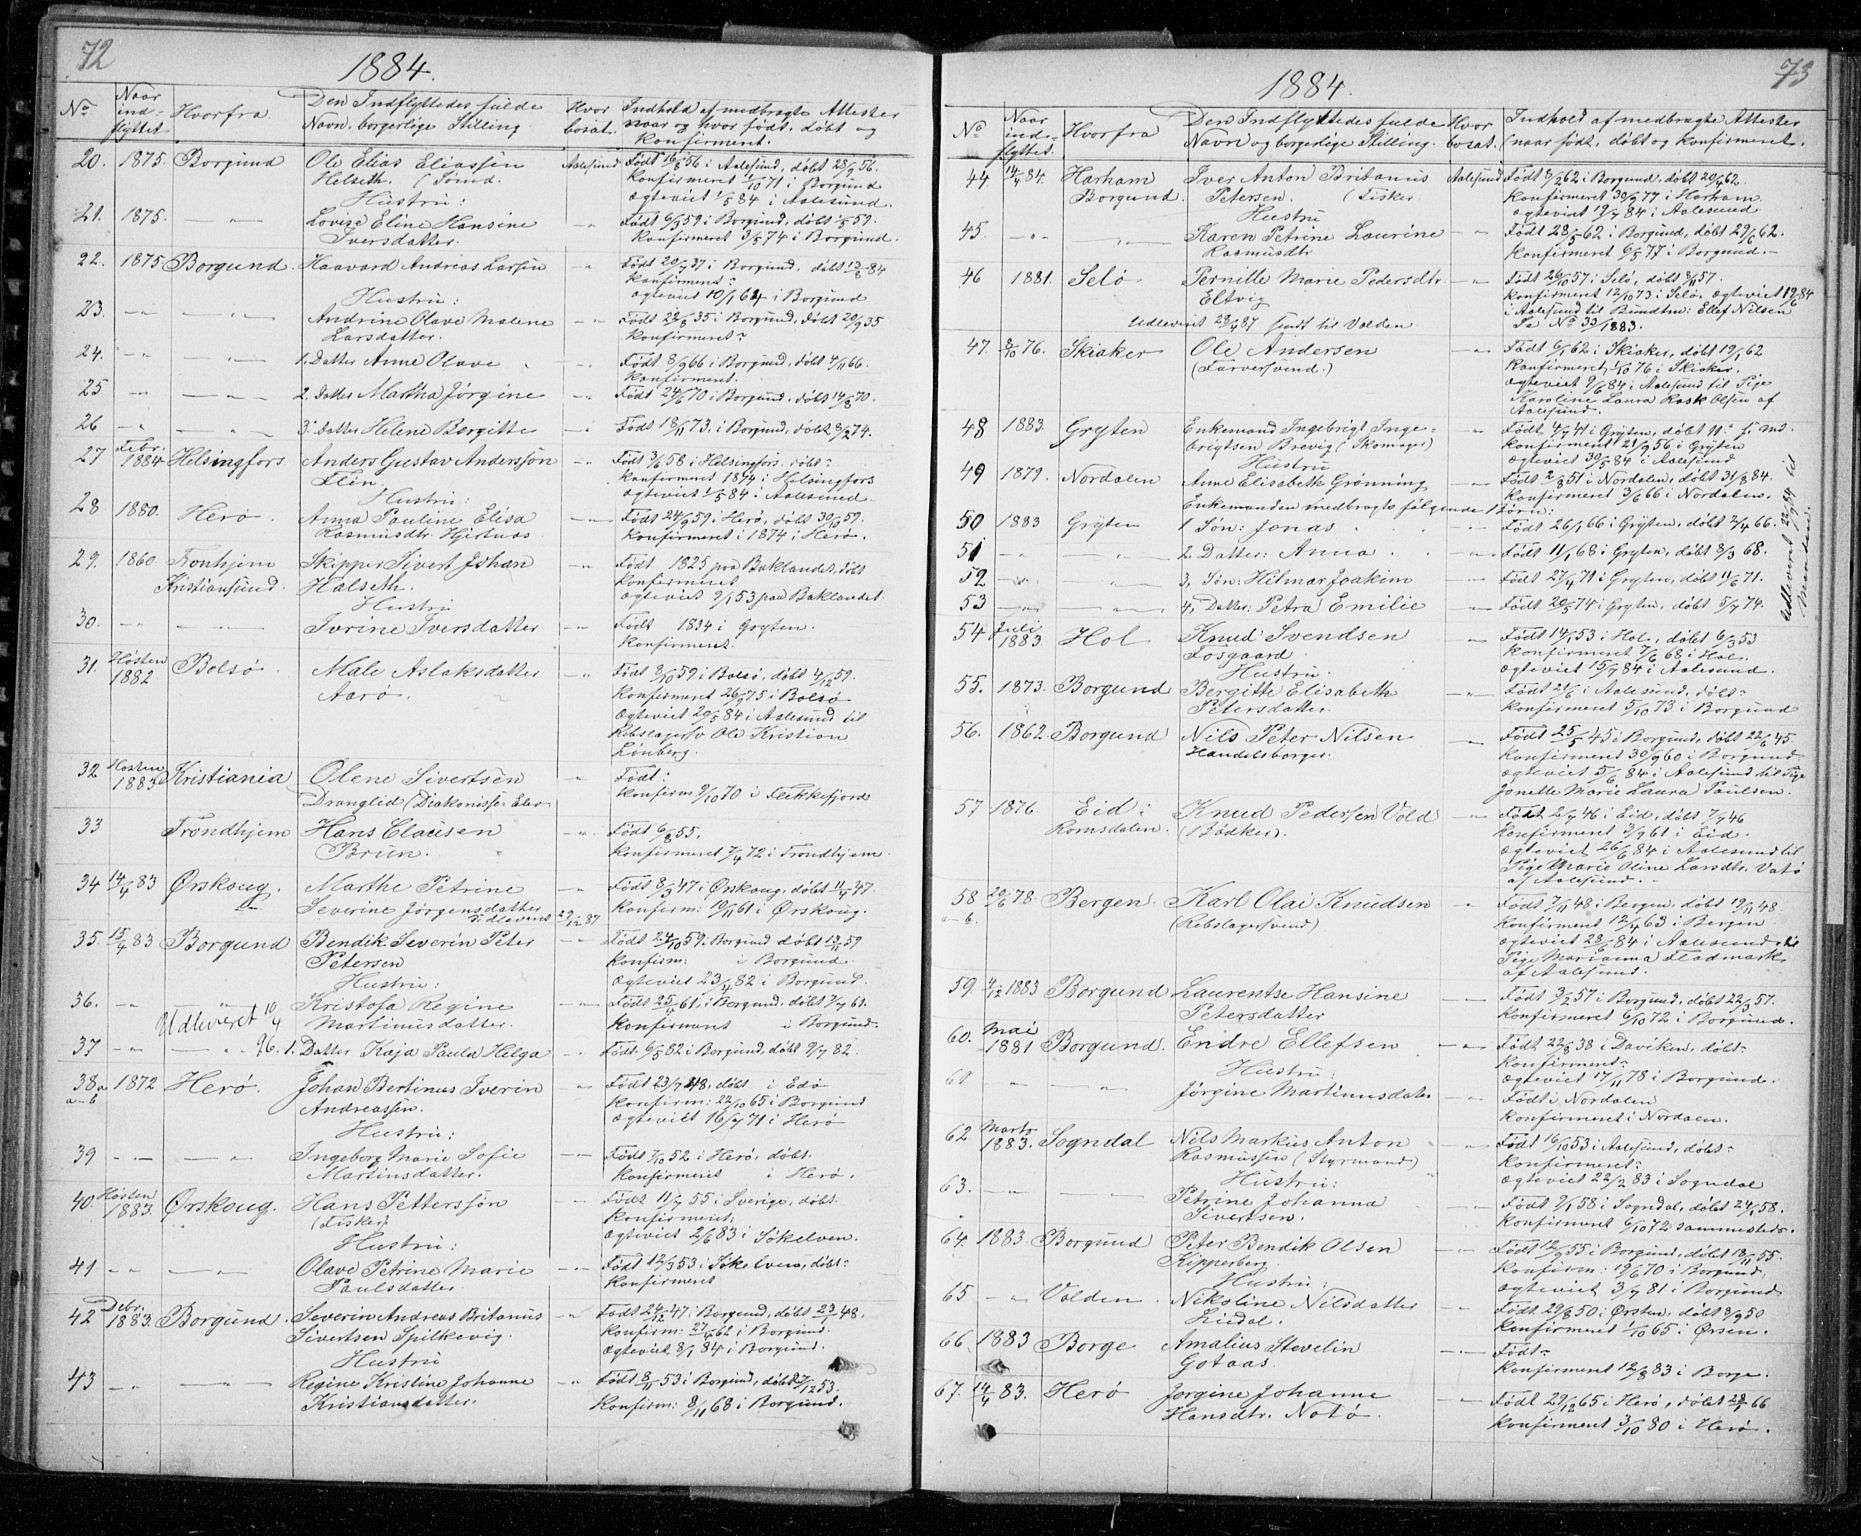 72
1884.
No
Naar ind- flyttet.
Hvorfra
Den Indflyttedes fulde
Navn, borgerlige Stilling
Hvor bosat.
Indhold af medbragte Attester
naar og hvor født, døbt og
konfirmeret.
20. 1875. Borgund Ole Elias Eliassen Aalesund Født 16/8 56 i Aalesund, døbt 28/9 56.
Helseth. (Smed. konfirmeret 1/10 71 i Borgund
Hustru: ægteviet 1/5 84 i Aalesund.
21. 1875. — Lovise Eline Hansine — Født 6/3 59 i Borgund, døbt 1/5 59.
Iversdatter. konfirmeret 3/5 74 i Borgund.
22. 1875 Borgund. Haavard Andreas Larsen — Født 20/7 37 i Borgund, døbt
konfirmeret?
Hustru: ægteviet 10/1 64 i Borgund
23. — — Andrine Olave Malene — Født 22/8 35 i Borgund, døbt 20/9 35
Larsdatter. konfirmeret?
24. — — 1. Datter Anne Olave — Født 8/9 66 i Borgund, døbt 4/11 66.
konfirmeret.
25 — — 2. Datter Martha Jørgine — Født 24/6 70 i Borgund, døbt 14/8 70.
26 — — 3. Datter Helene Bergitte — Født 18/11 73, i Borgund, døbt 8/2 74.
27 Febr. 1884 Helsingfors Anders Gustav Andersson — Født 3/6 58 i Helsingfors. døbt?
Flen konfirmeret 1874 i Helsingfors
Hustru: ægteviet 1/5 84 i Aalesund.
28 1880. Herø. Anna Pauline Elisa — Født 24/9 59 i Herø, døbt 30/10 59.
Rasmusdtr Hjertnæs konfirmeret i 1874 i Herø.
29. 1860. Tronhjem Skipper Sivert Johan — Født 1825 paa Baklandet, døbt
Kristiansund. Halseth. konfirmeret
Hustru ægteviet 9/1 53 paa Baklandet.
30. — — Ivrine Iversdatter — Født 1834 i Gryten.
konfirmeret.
31. Høsten 1882 Bolsø. Male Aslaksdatter — Født 8/10 59 i Bolsø, døbt 4/12 59.
Aarø. konfirmeret 26/9 75 i Bolsø
ægteviet 20/5 84 i Aalesund til
Rebslagersv Ole Kristian
Lønberg.
32 Høsten 1883 Kristiania Olene Sivertsen — Født:
Dranglid (Diakonisse Elev konfirm 9/10 70 i Flekkefjord
33 Trondhjem Hans Clausen — Født 6/8 55.
Brun. konfirmeret 7/4 72 i Trondhjem.
34 14/4 83 Ørskoug. Marthe Petrine — Født 8/3 47 i Ørskoug, døbt 11/4 47.
Severine Jørgensdatter konfirm: 10/11 61 i Ørskoug.
Udleveret 29/12 87
35. 15/4 83 Borgund Bendik Severin Peter — Født 24/10 59. Borgund døbt 13/11 59
Petersen konfirm: i Borgund
Hustru: ægteviet 23/4 82 i Borgund.
36. — — Kristofa Regine — Født 25/4 61. i Borgund. døbt 7/7 61.
Udleveret 10/4 96. Martinusdatter. konfirmeret i Borgund.
37 — — 1. Datter Kaja Paula Helga — Født. 6/5 82 i Borgund, døbt 9/7 82
38 a-b 1872 Herø. Johan Bertinus Iverin — Født 23/7 48, døbt i Edø
Andreassen. konfirm: 22/10 65 i Borgund
Hustru: ægteviet 16/7 71 i Herø
39 — — Ingeborg Marie Sofie — Født 7/10 52 i Herø, døbt.
Martinsdatter. konfirmeret i Herø.
40. Høsten 1883. Ørskoug. Hans Pettersson — Født 11/7 55 i Sverige, døbt.
(Fisker) konfirmeret.
Hustru: ægteviet 2/6 83 i Søkelven.
41 — — Olave Petrine Marie — Født 12/3 53 i Søkelven, døbt:
Paulsdatter. konfirmeret
42 Debr. 1883. Borgund. Severin Andreas Britanus — Født 24/12 47 i Borgund, døbt 23/1 48.
Sivertsen Spilkevig. konfirm: 27/4 62 i Borgund.
Hustru ægteviet 8/1 84 i Borgund.
43 — — Regine Kristine Johanne — Født 8/11 53 i Borgund, døbt 7/12 53.
Kristiansdatter. konfirm: 8/11 68 i Borgund.
73
1884.
No
Naar inde- flyttet.
Hvorfra
Den Indflyttedes fulde
Navn og borgerlige Stilling.
Hvor bosat.
Indhold af medbragte Attester
(naar født, døbt og konfirmeret.
44 14/4 84. Harham Iver Anton Britanus Aalesund Født 8/2 62 i Borgund, døbt 20/4 62.
Borgund. Petersen. (Fisker konfirmeret 30/9 77 i Harham
Hustru ægteviet 19/7 84 i Aalesund
45. — — Karen Petrine Laurine — Født 28/5 62 i Borgund, døbt 29/6 62.
Rasmusdtr konfirmeret 6/5 77 i Borgund.
46 1881. Selø. Pernille Marie Pedersdtr — Født 26/10 57. i Selø, døbt 8/11 57.
Eltvig konfirmeret 12/10 73 i Selø. ægteviet 19/6 84
Udleveret 28/4 87 sendt til Volden i Aalesund til Bundtm: Ellef Nilsen
Se No 33/1883.
47. 8/10 76. Skiaker Ole Andersen — Født 6/1 62 i Skiaker, døbt 19/1 62
(Farversvend.) konfirmeret 1/10 76 i Skiaker.
ægteviet 9/6 84 i Aalesund til Pige
Karoline Laura Rask Olsen af
Aalesund.
48 1883. Gryten Enkemand Ingebrigt Inge- — Født, 4/7 41 i Gryten, døbt 11. s. md.
brigtsen Brevig (Skomager) konfirmeret 21/9 56 i Gryten
Hustru ægteviet 30/5 84 i Aalesund
49 1879. Nordalen Anne Elisabeth Grønning — Født 2/8 51 i Nordalen, døbt 31/8 84.
Enkemanden medbragte følgende Børn: konfirmeret 3/6 66 i Nordalen.
50 1883 Gryten 1 Søn: Jonas — Født 26/1 66 i Gryten, døbt 2/4 66.
51 — — 2. Datter: Anna. — Født 11/1 68 i Gryten, døbt 8/3 68.
52 — — 3. Søn: Hilmar Joakim — Født 27/4 71 i Gryten, døbt 11/6 71.
53 — — 4. Datter: Petra Emilie — Født 20/5 74 i Gryten, døbt 5/7 74.
Udleveret 22/9 84 til
Manden.
54 Juli 1883 Hol Knud Svendsen — Født 14/1 53 i Hol, døbt 6/3 53
Fosgaard. konfirmeret 7/6 68 i Hol.
Hustru. ægteviet 15/7 84 i Aalesund.
55. 1873. Borgund Bergitte Elisabeth — Født 21/6 i Aalesund, døbt?
Petersdatter. konfirmeret 5/10 73 i Borgund
56. 1862. Borgund Nils Peter Nilsen — Født 25/5 45 i Borgund, døbt 22/6 45
Handelsborger. konfirmeret 30/9 60 i Borgund
ægteviet 5/6 84 i Aalesund til Pige
Jonette Marie Laura Paulsen.
57 1876. Eid i Knud Pedersen Vold — Født 2/7 46 i Eid, døbt 7/7 46
Romsdalen. (Bødker). konfirmeret 3/7 61 i Eid.
ægteviet 26/6 84 i Aalesund til
Pige Marie Oline Larsdtr. Vatø
af Aalesund.
58 a-b. 20/6 78. Bergen. Karl Olai Knudsen — Født 7/11 48 i Bergen, døbt 19/11 48.
(Rebslagersvend) konfirmeret 12/4 63 i Bergen
ægteviet 29/6 84 i Aalesund til
Pige Marianna Fladmark
af Aalesund.
59. 4/12 1883 Borgund Laurentse Hansine — Født 3/2 57 i Borgund, døbt 22/3 57.
Petersdatter konfirmeret 6/10 72 i Borgund.
60. Mai 1881 Borgund. Endre Ellefsen — Født 22/8 38 i Daviken, døbt?
konfirmeret?
Hustru: ægteviet 17/11 78 i Borgund.
61 — — Jørgine Martinusdatter — Født i Nordalen
konfirmeret i Nordalen.
62 Marts 1883. Sogndal Nils Markus Anton — Født 16/10 53 i Aalesund, døbt?
Rasmussen (Styrmand) konfirmeret?
Hustru: ægteviet 22/2 83 i Sogndal
63. — — Petrine Johanna — Født 2/1 58 i Sogndal, døbt 24/1 58.
Sivertsen. konfirmeret 6/10 72 sammesteds.
64. 1883. Borgund Peter Bendik Olsen — Født 12/9 55 i Borgund, døbt 18/11 55.
Kipperberg konfirm: 19/6 70 i Borgund.
Hustru: ægteviet 3/7 81 i Borgund
65 — Volden. Nikoline Nilsdatter — Født 29/8 50 i Ørsten, døbt 8/9 50
Liedal. konfirmeret 1/10 65 i Ørsen.
66. 1883 Borge Amalius Stevelin — Født?
Gotaas. konfirmeret 12/8 83 i Borge.
67. 14/4 83. Herø Jørgine Johanne — Født 29/12 65 i Herø, døbt 28/1 66
Hansdtr. Notø. konfirmeret 3/10 80 i Herø.